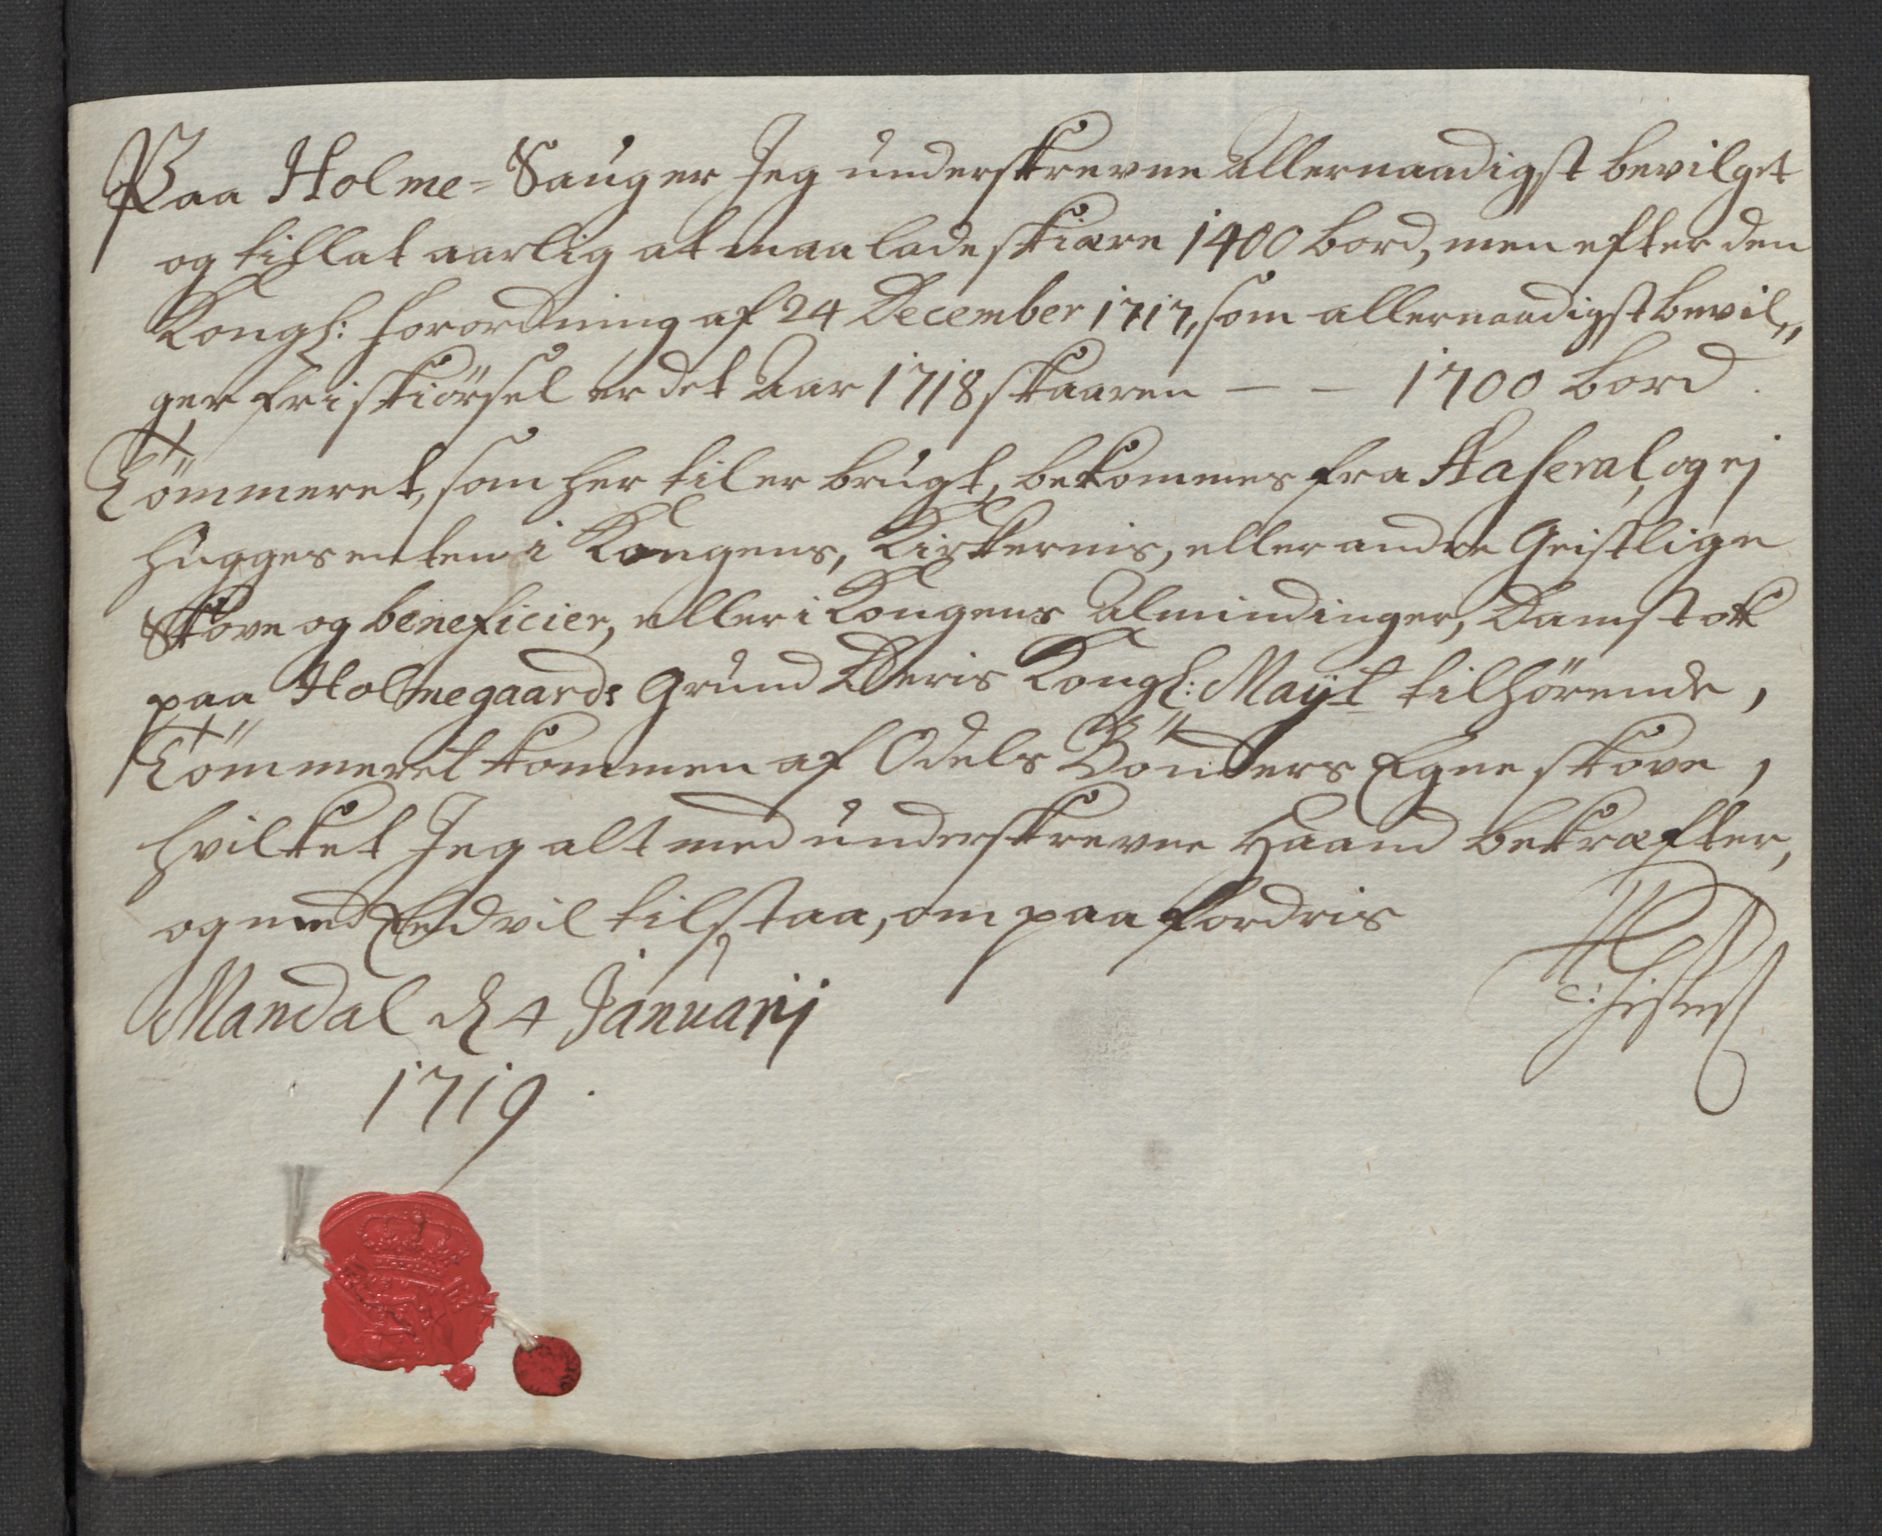 Paa Holme-Sauger Jeg underskrevne Allernaadigst bevilget
og tillat aarlig at maa lade skiære 1400 bord, men efter den
Kongl: forordning af 24 December 1717, som allernaadigst bevil„
ger fri skiörsel er det Aar 1718 skaaren — — 1700 bord.
Tömmeret, som her til er brugt, bekommes fra Aaseral, og ej
hugges enten i Kongens, Kirkernis, eller andre Geistlige
Skove og beneficier, eller i Kongens Almindinger, Damstok
paa Holmegaards Grund Deris Kongl: Mayt tilhörende,
Tömmeret kommen af Odels Bönders Egne skove,
hvilket Jeg alt med underskrevne Haand bekræfter,
og med Eed vil tilstaa, om paa fordris
Mandal d 4 Januarij
1719.